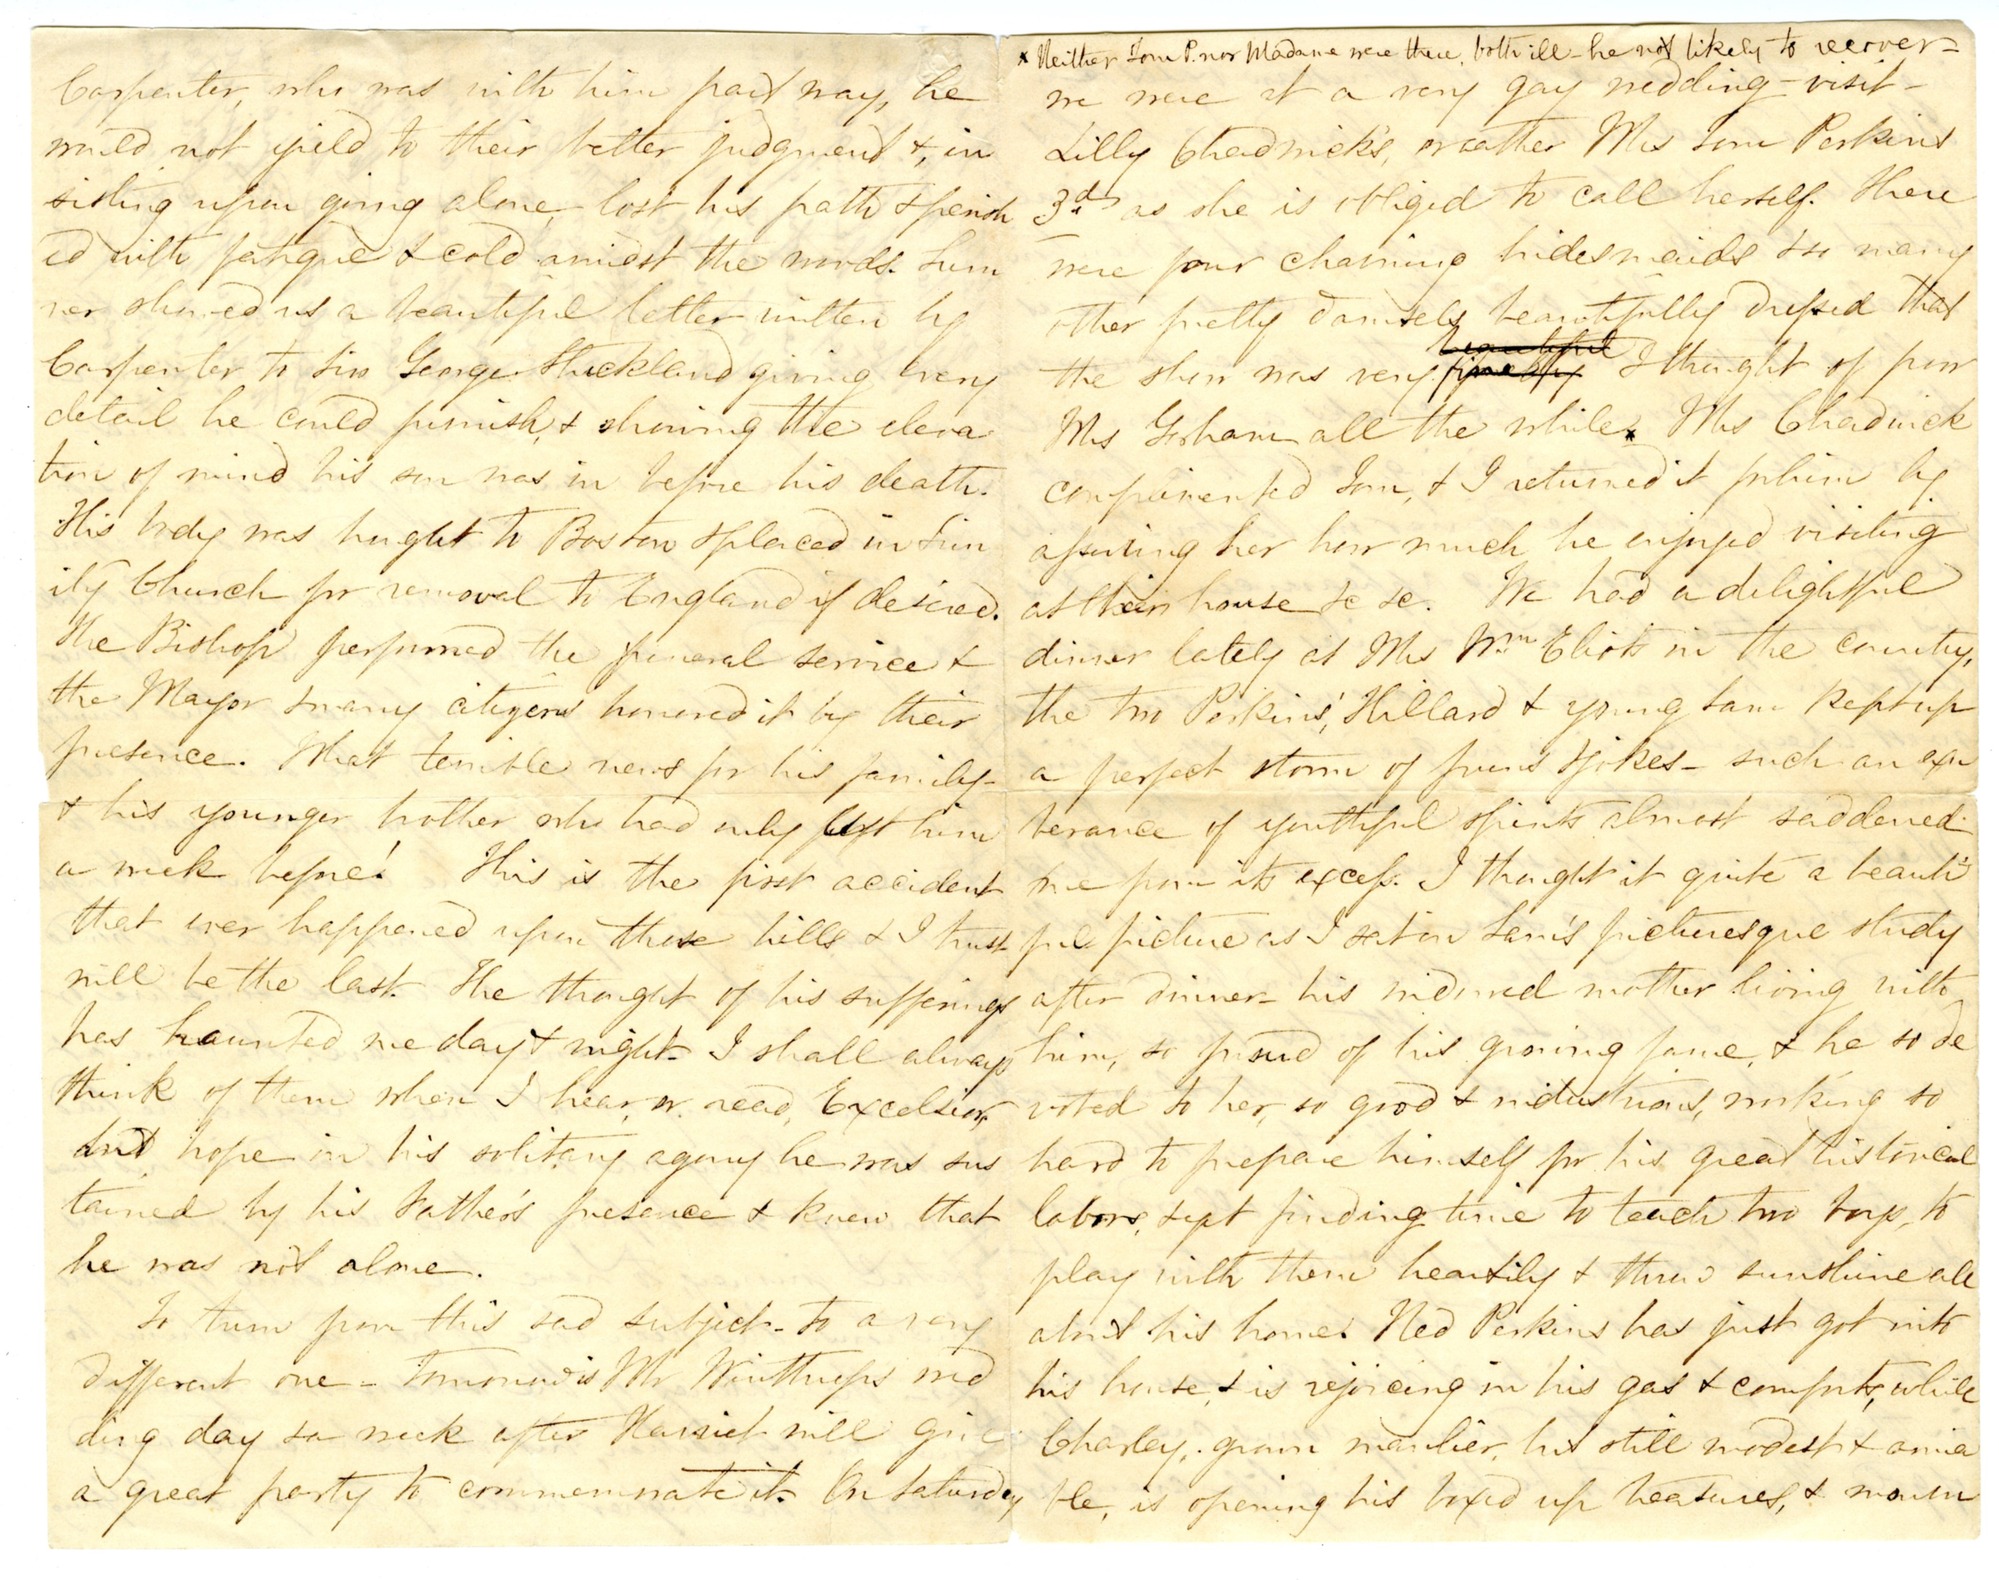 Carpenter, who was with him part way, he
would not yield to their better judgment &, in
sisting upon going alone, lost his path & perish
ed with fatigue & cold amidst the woods. Sum
ner showed us a beautiful letter written by
Carpenter to Sir George Strickland giving every
detail he could furnish, & showing the eleva
tion of mind his son was in before his death.
His body was brought to Boston & placed in Trin
ity Church for removal to England if desired.
The Bishop performed the funeral service &
the Mayor & many citizens honored it by their
presence. What terrible news for his family –
& his younger brother who had only left him
a week before! This is the first accident
that ever happened upon those hills & I trust
will be the last. The thought of his sufferings
has haunted me day & night – I shall always
think of them when I hear, or read, Excelsior,
but hope in his solitary agony he was sus
tained by his Father's presence & knew that
he was not alone.
To turn from this sad subject – to a very
different one – tomorrow is Mr Winthrop's wed
ding day & a week after Harriet will give
a great party to commemorate it. On Saturday
x Neither Tom P. nor Madame were there, both ill – he not likely to recover –
we were at a very gay wedding-visit –
Lilly Chadwick's, or rather Mrs Tom Perkins
3d as she is obliged to call herself. There
were four charming bridesmaids & so many
other pretty damsels beautifully dressed that
the show was very beautiful I thought of poor
Mrs Gorham all the while x Mrs Chadwick
complimented Tom, & I returned it for him by
assuring her how much he enjoyed visiting
at their house &c &c. We had a delightful
dinner lately at Mrs Wm Eliot's in the country,
the two Perkins', Hillard & young Sam kept up
a perfect storm of puns & jokes – such an exu
berance of youthful spirits almost saddened
me from its excess. I thought it quite a beauti
ful picture as I sat in Sam's picturesque study
after dinner – his widowed mother living with
him, so proud of his growing fame, & he so de
voted to her, so good & industrious, working so
hard to prepare himself for his great historical
labors, & yet finding time to teach two boys, to
play with them heartily & throw sunshine all
about his home. Ned Perkins has just got into
his house, & is rejoicing in his gas & comforts, while
Charley, grown manlier, but still modest & amia
ble, is opening his boxed up treasures, & mourn